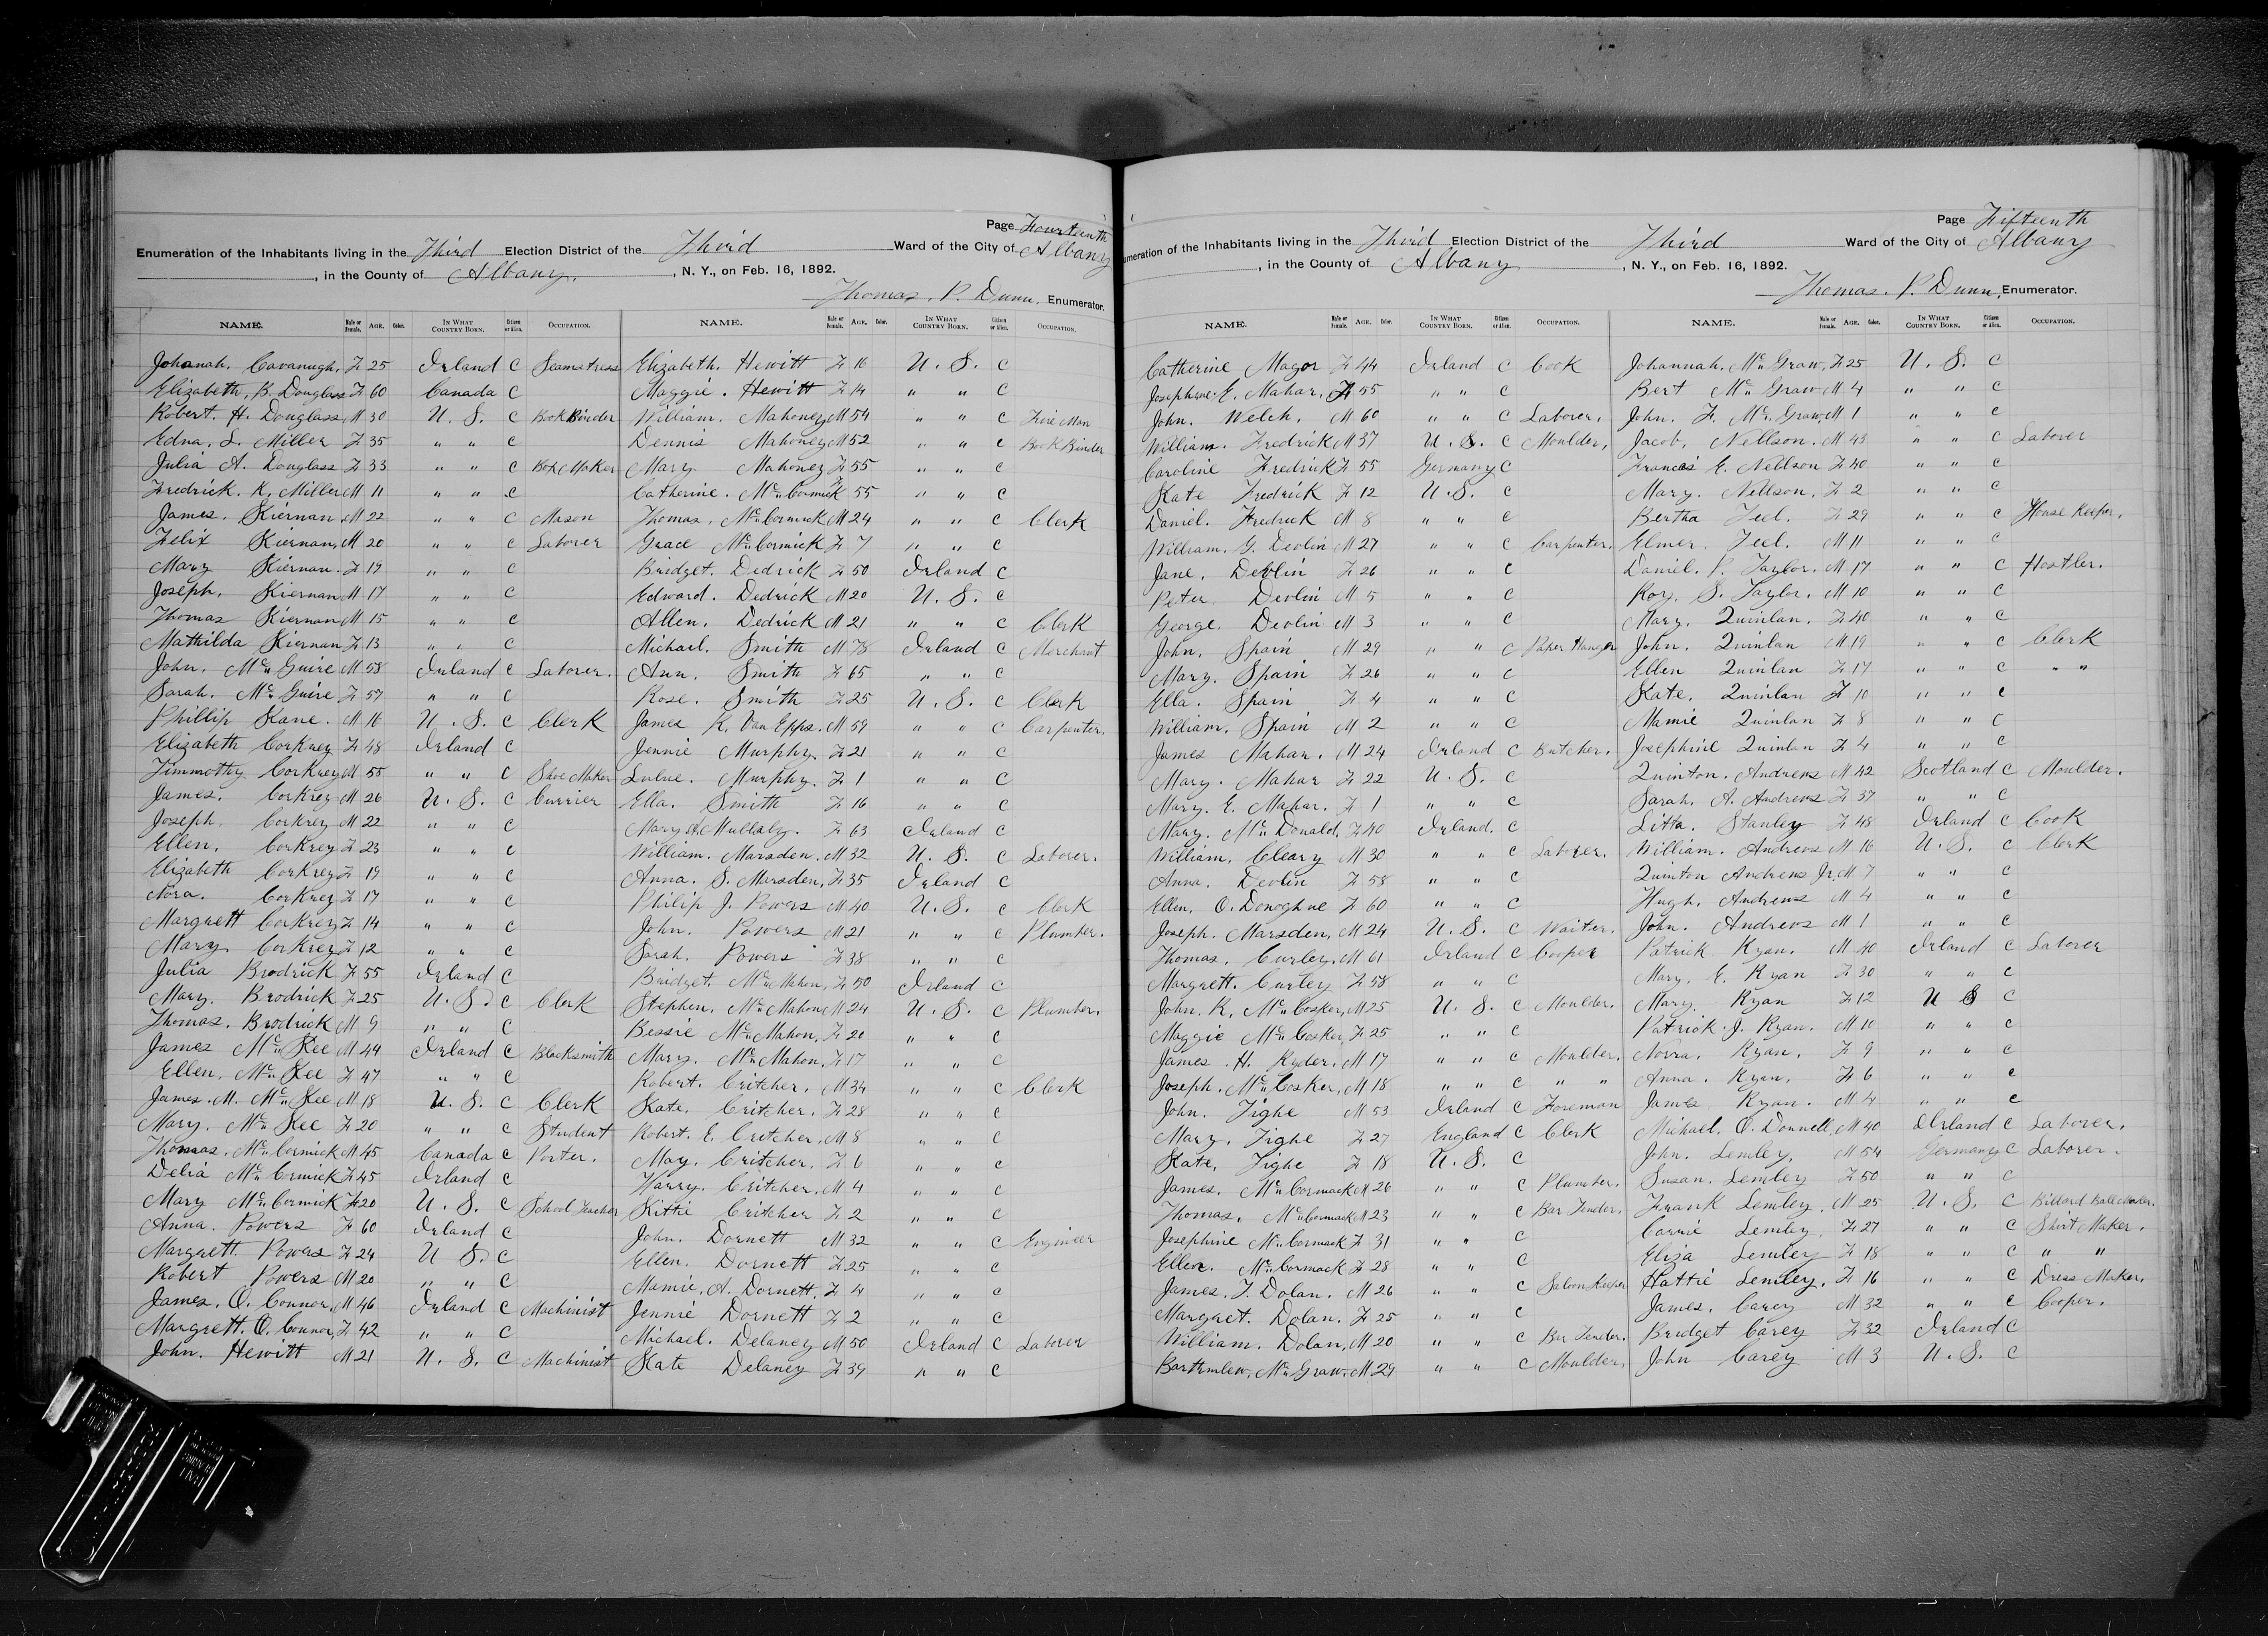 Page Fourteenth
Enumeration of the Inhabitants living in the Third Election District of the Third Ward of the City of Albany
, in the County of Albany. , N. Y., on Feb. 16, 1892.
Thomas. P. Dunn, Enumerator.
NAME. Male or Female. AGE. Color. IN WHAT COUNTRY BORN. Citizen or Alien. OCCUPATION.
Johanah. Cavanugh. F 25 Irland C Seamstress
Elizabeth. B. Douglass F 60 Canada C
Robert. H. Douglass M 30 U. S. C Book Binder
Edna. L. Miller F 35 " " C
Julia A. Douglass F 33 " " C Box Maker
Fredrick. K. Miller M 11 " " C
James. Kiernan M 22 " " C Mason
Felix Kiernan. M 20 " " C Laborer
Mary Kiernan. F 19 " " C
Joseph. Kiernan M 17 " " C
Thomas Kiernan M 15 " " C
Mathilda Kiernan F 13 " " C
John. Mc Guire M 58 Irland C Laborer.
Sarah. Mc Guire F 57 " " C
Phillip Kane. M 16 U. S. C Clerk
Elizabeth Corkrey F 48 Irland C
Timmothy Corkrey M 55 " " C Shoe Maker
James. Corkrey M 26 U. S. C Currier
Joseph. Corkrey M 22 " " C
Ellen. Corkrey F 23 " " C
Elizabeth Corkrey F 19 " " C
Nora. Corkrey F 17 " " C
Margrett Corkrey F 14 " " C
Mary Corkrey F 12 " " C
Julia Brodrick F 55 Irland C
Mary. Brodrick F 25 U. S. C Clerk
Thomas. Brodrick M 9 " " C
James Mc Kee M 44 Irland C Blacksmith
Ellen. Mc Kee F 47 " " C
James. M. Mc Kee M 18 U. S. C Clerk
Mary. Mc Kee F 20 " " C Student
Thomas. Mc Cormick M 45 Canada C Porter.
Delia Mc Crmick F 45 Irland C
Mary Mc Cormick F 20 U. S. C School Teacher
Anna. Powers F 60 Irland C
Margrett. Powers F 24 U S. C
Robert Powers M 20 " " C
James. O. Connor, M 46 Irland C Machinist
Margrett. O. Connor, F 42 " " C
John. Hewitt M 21 U. S. C Machinist
NAME. Male or Female. AGE. Color. IN WHAT COUNTRY BORN. Citizen or Alien. OCCUPATION.
Elizabeth. Hewitt F 16 U. S. C
Maggie. Hewitt F 14 " " C
William. Mahoney M 54 " " C Fire Man
Dennis Mahoney M 52 " " C Book Binder
Mary Mahoney F 55 " " C
Catherine. Mc Cormick F 55 " " C
Thomas. Mc Cormick M 24 " " C Clerk
Grace Mc Cormick F 7 " " C
Bridget. Dedrick F 50 Irland C
Edward. Dedrick M 20 U. S. C
Allen. Dedrick M 21 " " C Clerk
Michael. Smith M 78 Irland C Merchant
Ann. Smith F 65 " " C
Rose. Smith F 25 U. S. C Clerk
James K. Van Epps. M 59 " " C Carpenter.
Jennie Murphy. F 21 " " C
Murphy. F 1 " " C
Ella. Smith F 16 " " C
Mary Mullaly. F 63 Irland C
William. Marsden. M 32 U. S. C Laborer.
Anna. S. Marsden, F 35 Irland C
Philip J. Powers M 40 U. S. C Clerk
John. Powers M 21 " " C Plumber.
Sarah. Powers F 38 " " C
Bridget. Mc Mahon, F 50 Irland C
Stephen. Mc Mahon M 24 U. S. C Plumber.
Bessie Mc Mahon, F 20 " " C
Mary. Mc Mahon. F 17 " " C
Robert. Critcher. M 34 " " C Clerk
Kate. Critcher. F 28 " " C
Robert. E. Critcher. M 8 " " C
May. Critcher. F 6 " " C
Harry. Critcher. M 4 " " C
Kittie Critcher F 2 " " C
John. Dornett M 32 " " C Engineer
Ellen. Dornett F 25 " " C
Mamie. A. Dornett. F 4 " " C
Jennie Dornett F 2 " " C
Michael. Delaney M 50 Irland C Laborer
Kate Delaney F 39 " " C
Page Fifteenth
umeration of the Inhabitants living in the Third Election District of the Third Ward of the City of Albany
, in the County of Albany , N. Y., on Feb. 16, 1892.
Thomas. P. Dunn, Enumerator.
NAME. Male or Female. AGE. Color. IN WHAT COUNTRY BORN. Citizen or Alien. OCCUPATION.
Catherine Magor F 44 Irland C Cook
Josephine. E. Mahar, F 55 " " C
John. Welch. M 60 " " C Laborer.
William. Fredrick M 37 U. S. C Moulder,
Caroline Fredrick F 55 Germany C
Kate Fredrick F 12 U. S. C
Daniel. Fredrick M 8 " " C
William. G. Devlin M 27 " " C Carpenter.
Jane. Devlin F 26 " " C
Peter. Devlin M 5 " " C
George. Devlin M 3 " " C
John. Spain M 29 " " C Paper Hanger
Mary. Spain F 26 " " C
Ella. Spain F 4 " " C
William. Spain M 2 " " C
James Mahar. M 24 Irland C Butcher.
Mary. Mahar F 22 U. S. C
Mary. E. Mahar. F 1 " " C
Mary. Mc Donald. F 40 Irland. C
William. Cleary M 30 " " C Laborer.
Anna. Devlin F 58 " " C
Ellen. O. Donoghue F 60 " " C
Joseph. Marsden, M 24 U. S. C Waiter.
Thomas. Curley. M 61 Irland C Cooper
Margrett. Curley F 58 " " C
John. K. Mc Cosker, M 25 U. S. C Moulder.
Maggie Mc Cosker, F 25 " " C
James. H. Ryder. M 17 " " C Moulder.
Joseph. Mc Cosker, M 18 " " C " "
John. Tighe M 53 Irland C Foreman
Mary. Tighe F 27 England C Clerk
Kate. Tighe F 18 U. S. C
James. Mc Cormack M 26 " " C Plumber.
Thomas. Mc Cormack M 23 " " C Bar Tender.
Josephine Mc Cormack F 31 " " C
Ellen. Mc Cormack F 28 " " C
James. T. Dolan. M 26 " " C Saloon Keeper
Margaret. Dolan. F 25 " " C
William. Dolan. M 20 " " C Bar Tender.
Bartemlew. Mc Graw. M 29 " " C Moulder,
NAME. Male or Female. AGE. Color. IN WHAT COUNTRY BORN. Citizen or Alien. OCCUPATION.
Johannah. Mc Graw, F 25 U. S. C
Bert Mc Graw M 4 " " C
John. F. Mc Graw M 1 " " C
Jacob. Nellson. M 43 " " C Laborer
Frances E. Nellson F 40 " " C
Mary. Nellson. F 2 " " C
Bertha Teel. F 29 " " C House Keeper.
Elmer. Teel. M 11 " " C
Daniel. P. Taylor. M 17 " " C Hostler.
Roy. S. Taylor. M 10 " " C
Mary. Quinlan. F 40 " " C
John. Quinlan M 19 " " C Clerk
Ellen Quinlan F 17 " " C " "
Kate. Quinlan F 10 " " C
Mamie Quinlan F 8 " " C
Josephine Quinlan F 4 " " C
Quinton. Andrews M 42 Scotland C Moulder.
Sarah. A. Andrews F 37 " " C
Litta. Stanley F 48 Irland C Cook
William. Andrews M 16 U. S. C Clerk
Quinton Andrews Jr. M 7 " " C
Hugh. Andrews M 4 " " C
John. Andrews M 1 " " C
Patrick Ryan. M 40 Irland C Laborer
Mary. E. Ryan F 30 " " C
Mary. Ryan F 12 U S C
Patrick. J. Ryan. M 10 " " C
Norra. Ryan. F 9 " " C
Anna. Ryan. F 6 " " C
James Ryan. M 4 " " C
Michael. O. Donnell, M 40 Irland C Laborer.
John. Lemley, M 54 Germany C Laborer.
Susan. Lemley F 50 " " C
Frank Lemley. M 25 U. S. C Billard Ball Maker.
Carrie Lemley. F 27 " " C Shirt Maker.
Eliza Lemley F 18 " " C " "
Hattie Lemley. F 16 " " C Dress Maker.
James. Carey M 32 " " C Cooper.
Bridget Carey F 32 Irland C
John Carey M 3 U. S. C